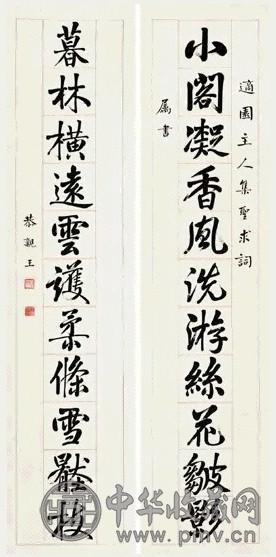 適園主人集聖求詞
小閣凝香風洗游絲花皺影
属書
暮林橫遠雲護柔條雪壓枝
恭親王
中华收藏网
www.pmv.cn